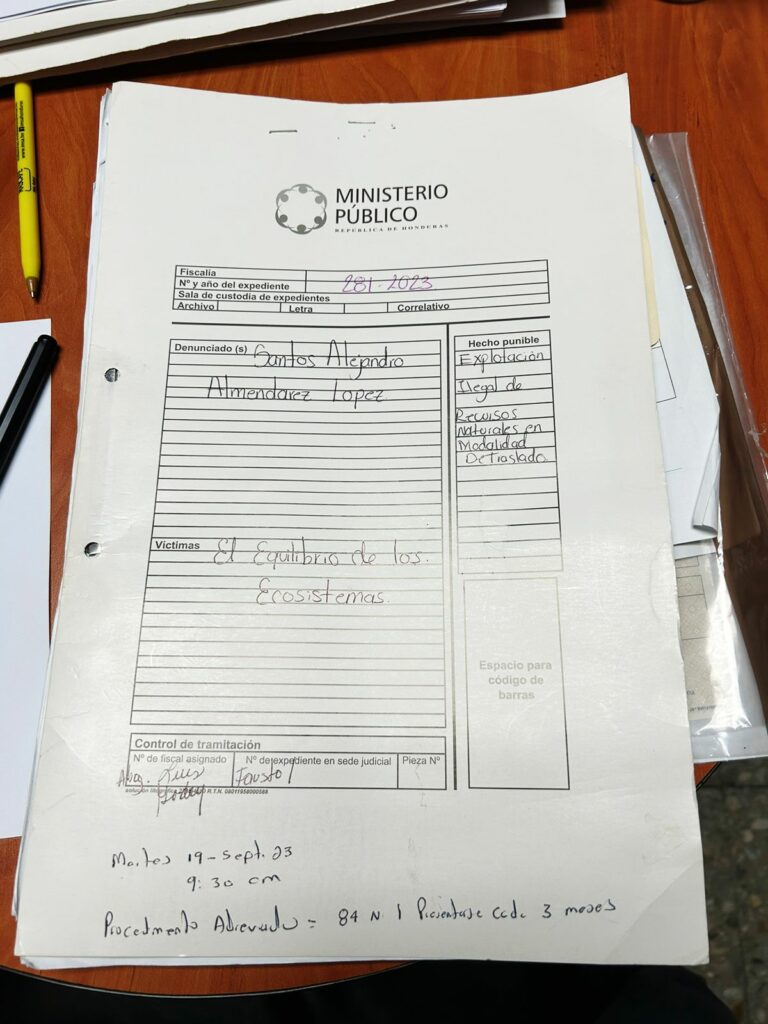 MINISTERIO
PÚBLICO
REPÚBLICA DE HONDURAS
Fiscalía
Nº y año del expediente 281-2023
Sala de custodia de expedientes
Archivo Letra Correlativo
Denunciado (s) Santos Alejandro
Almendarez Lopez
Hecho punible
Explotación
Ilegal de
Recursos
Naturales en
Modalidad
De Traslado
Víctimas El Equilibrio de los
Ecosistemas.
Espacio para
código de
barras
Control de tramitación
Nº de fiscal asignado Nº de expediente en sede judicial Pieza Nº
Abog. Luis Fausto
R.T.N. 08011958000588
Martes 19-Sept. 23
9:30 am
Procedimiento Abreviado = 84 N. 1 Presentarse Cada 3 meses